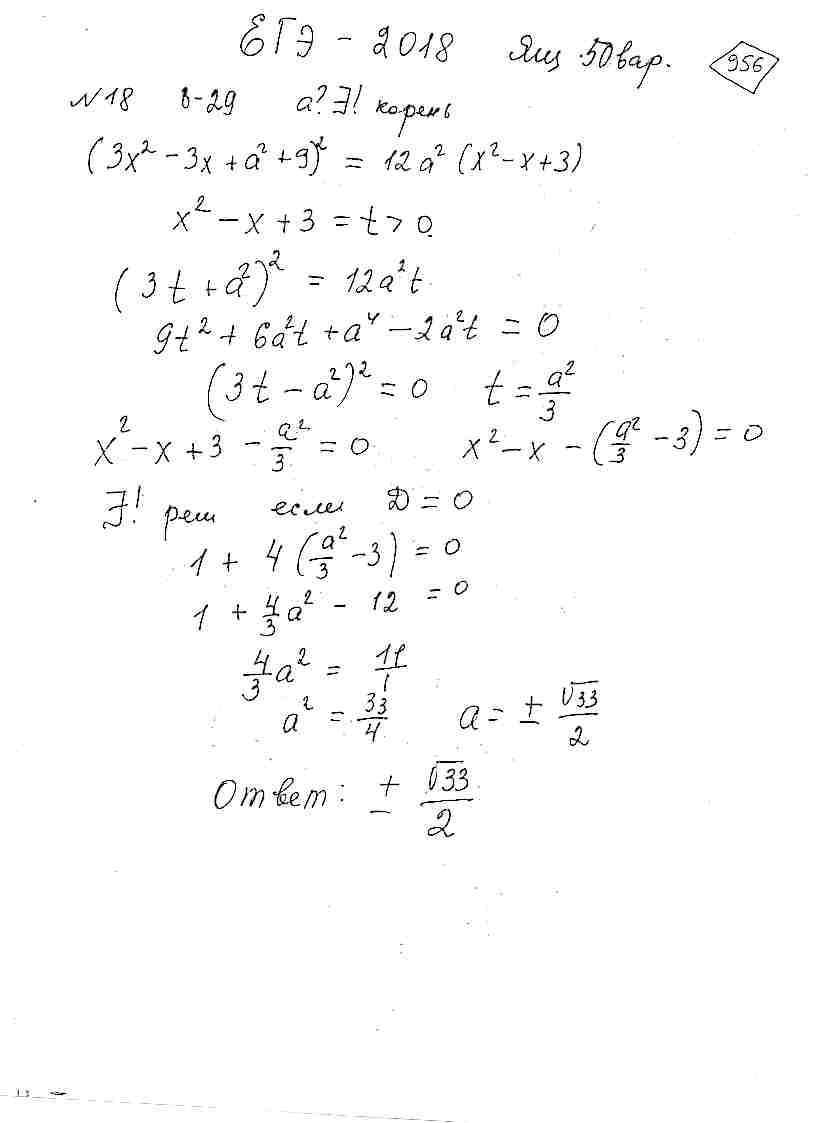 ЕГЭ - 2018 Ящ 50 вар. 956
N18 в-29 a? ∃! корень
(3x² - 3x + a² + 9)² = 12a² (x² - x + 3)
x² - x + 3 = t > 0
(3t + a²)² = 12a²t
9t² + 6a²t + a⁴ - 2a²t = 0
(3t - a²)² = 0 t = a²/3
x² - x + 3 - a²/3 = 0 x² - x - (a²/3 - 3) = 0
∃! реш если D = 0
1 + 4(a²/3 - 3) = 0
1 + 4/3 a² - 12 = 0
4/3 a² = 11/1
a² = 33/4 a = ± √33/2
Ответ: ± √33/2